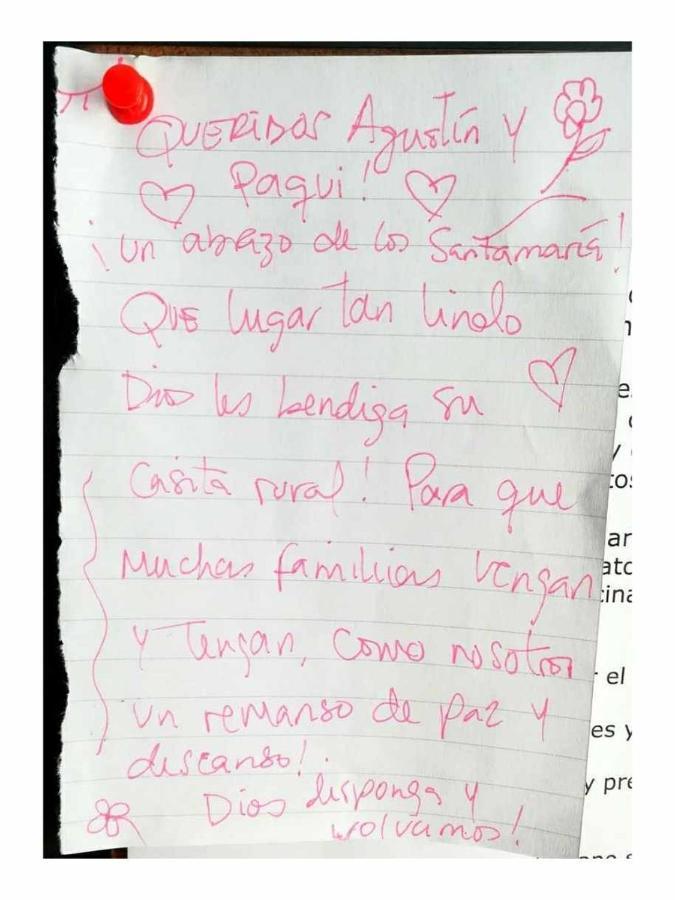 QUERIDOS Agustín y
Paqui!
¡un abrazo de los Santamaría!
Que lugar tan lindo
Dios les bendiga su
casita rural! Para que
muchas familias vengan
y tengan, como nosotros
un remanso de paz y
descanso!.
Dios disponga y
volvamos!